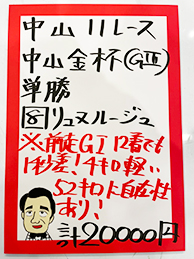 中山11レース
中山金杯(GⅢ)
単勝
⑧リュヌルージュ
※前走GⅠ12着でも
1秒差!4キロ軽い
52キロト自在性
あり!
計20000円